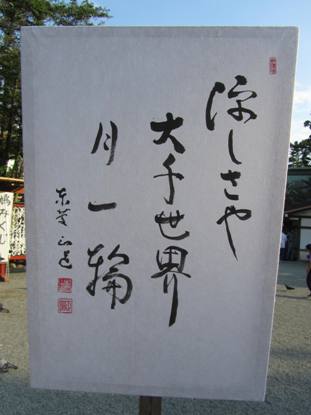 涼しさや
大千世界
月一輪